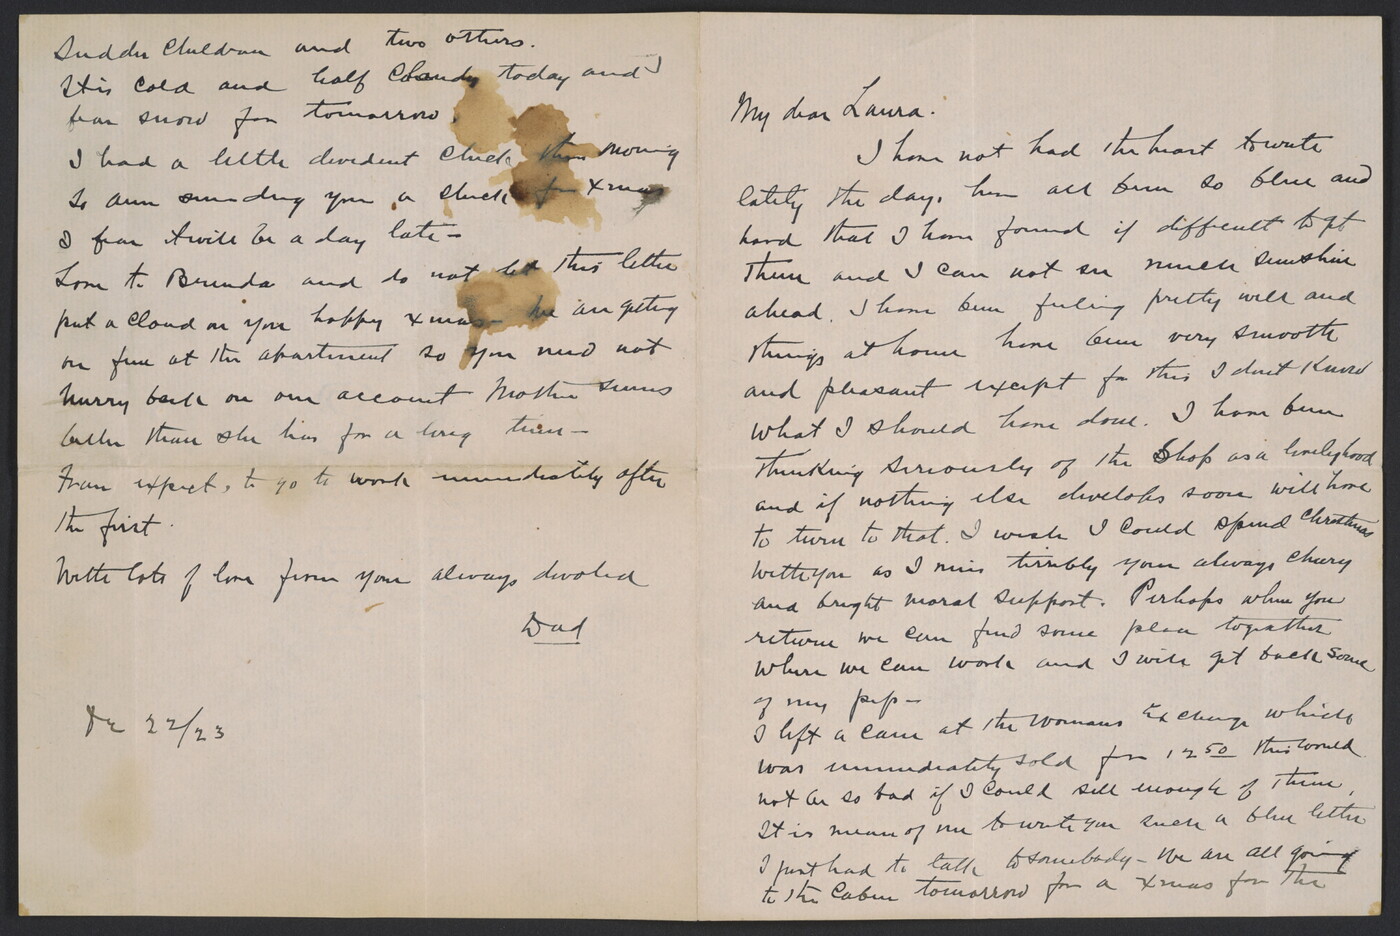 My dear Laura.
I have not had the heart to write
lately the days have all been so blue and
hard that I have found if difficult to get
them and I can not see much sunshine
ahead. I have been feeling pretty well and
things at home have been very smooth
and pleasant except for this I dont know
what I should have done. I have been
thinking seriously of the Shop as a livelyhood
and if nothing else develops soon will have
to turn to that. I wish I could spend Christmas
with you as I miss terribly your always cheery
and bright moral support. Perhaps when you
return we can find some plan together
where we can work and I will get back some
of my pep—
I left a cane at the Womans Exchange which
was immediately sold for 12 50 this would
not be so bad if I could sell enough of them,
It is mean of me to write you such a blue letter
I just had to talk to somebody — We are all going
to the Cabin tomorrow for a Xmas for the
children and two others.
It is cold and half cloudy today and I
fear snow for tomorrow.
I had a little divident check this morning
so am sending you a check for Xmas
I fear it will be a day late—
Love to Brenda and do not let this letter
put a cloud on your happy Xmas— We are getting
on fine at the apartment so you need not
hurry back on our account Mother seems
better than she has for a long time—
Fran expects to go to work immediately after
the first.
With lots of love from your always devoted
Dad
De 22/23